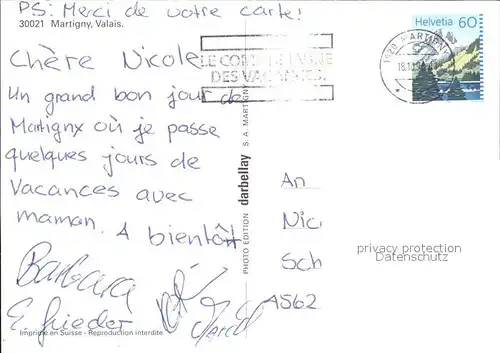 PS: Merci de votre carte!
30021 Martigny, Valais.
Helvetia 60
1920 MARTIGNY
18.10.
DES VACANCES
Chère Nicole
Un grand bon jour de
Martigny où je passe
quelques jours de
Vacances avec
maman. A bientôt
Barbara
E. Grieder
PHOTO EDITION darbellay S. A. MARTIGNY
An
Nic
Sch
A562
privacy protection
Datenschutz
Imprimé en Suisse - Reproduction interdite